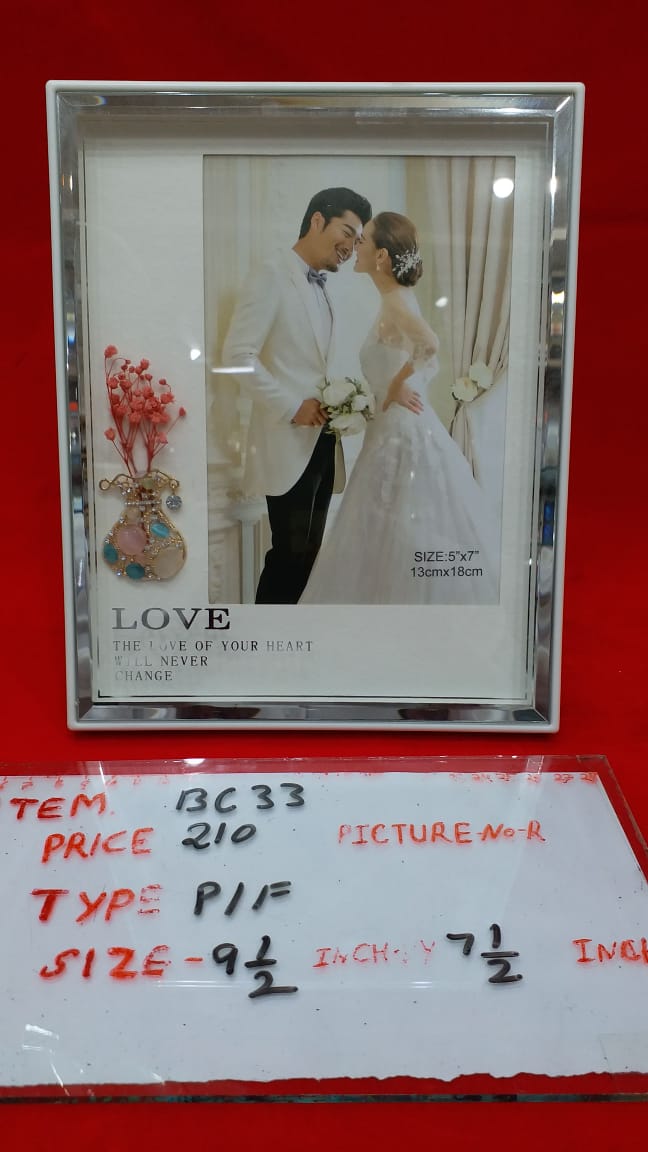 SIZE:5"x7"
13cmx18cm
LOVE
THE LOVE OF YOUR HEART
WILL NEVER
CHANGE
ITEM. BC33
PRICE 210 PICTURE-No-R
TYPE P/F
SIZE-9 1/2 INCH 7 1/2